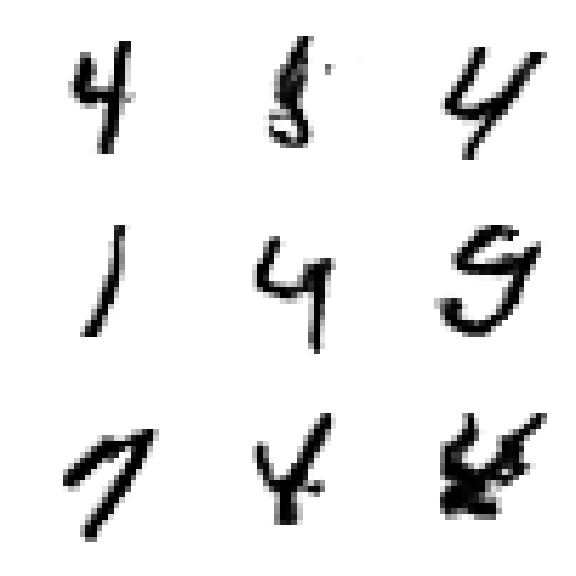 4 8 4
1 4 9
7 4